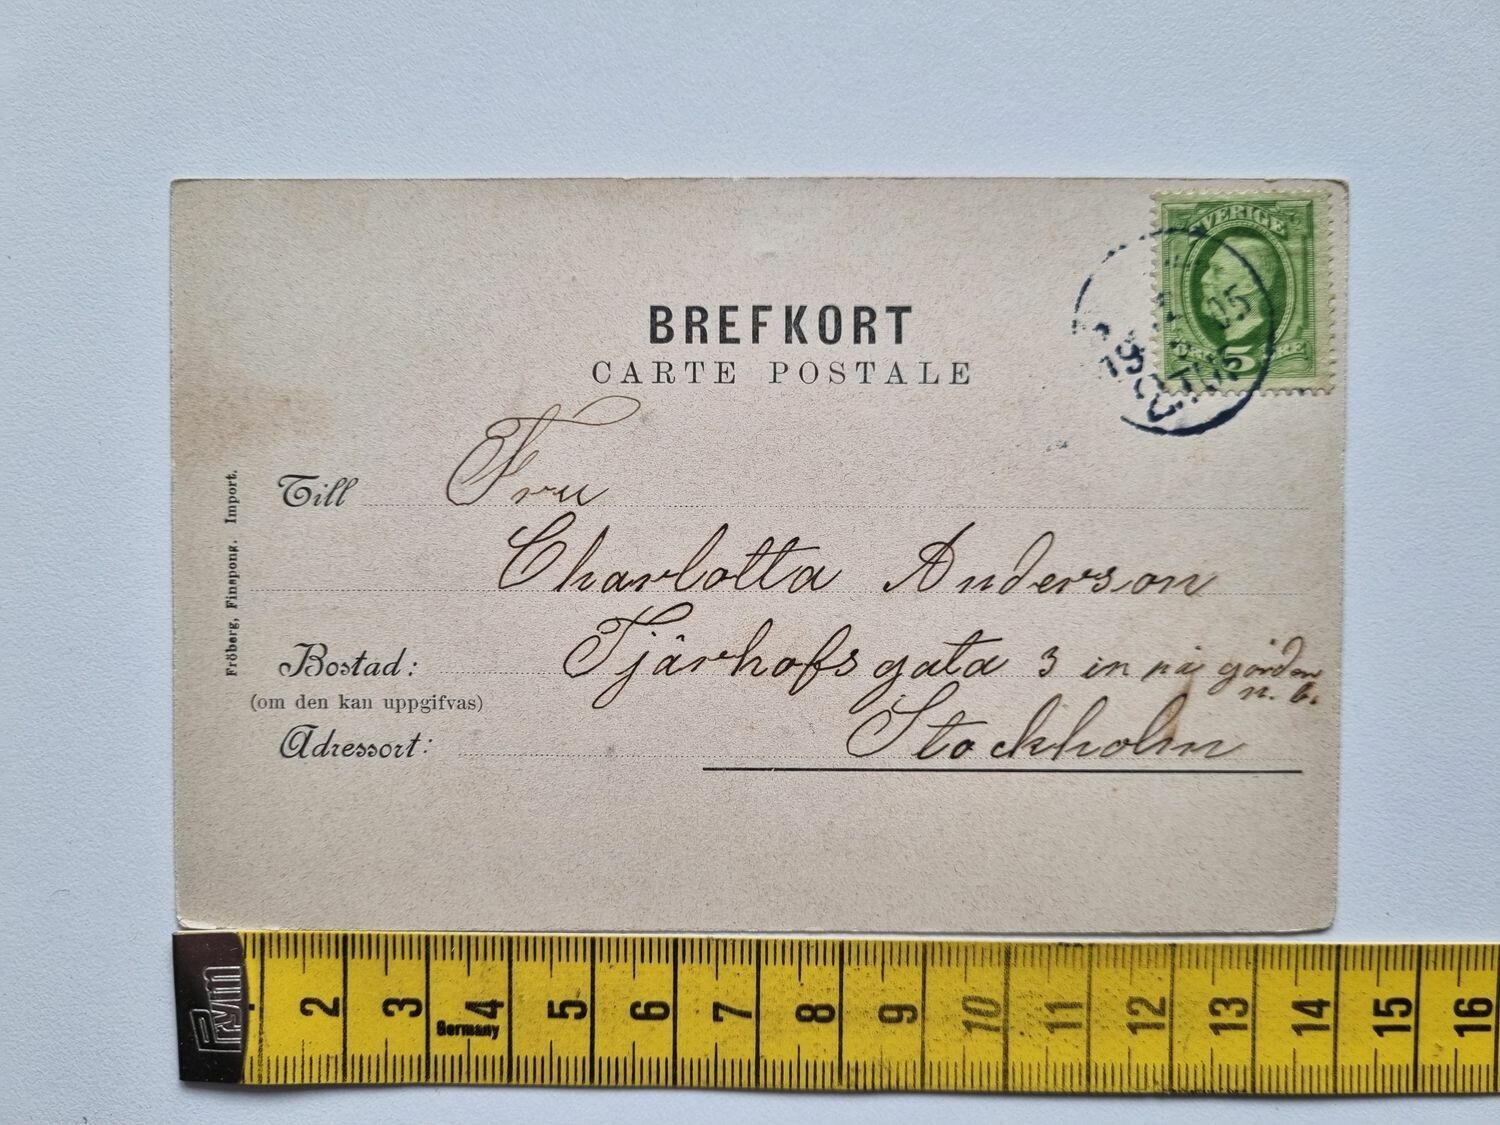 SVERIGE
5
BREFKORT
CARTE POSTALE
Till Fru
Charlotta Anderson
Bostad: Tjärhofsgata 3 in på gården
n. b.
(om den kan uppgifvas)
Adressort: Stockholm
Fröberg, Finspong. Import.
Prym
2 3 4 5 6 7 8 9 10 11 12 13 14 15 16
Germany